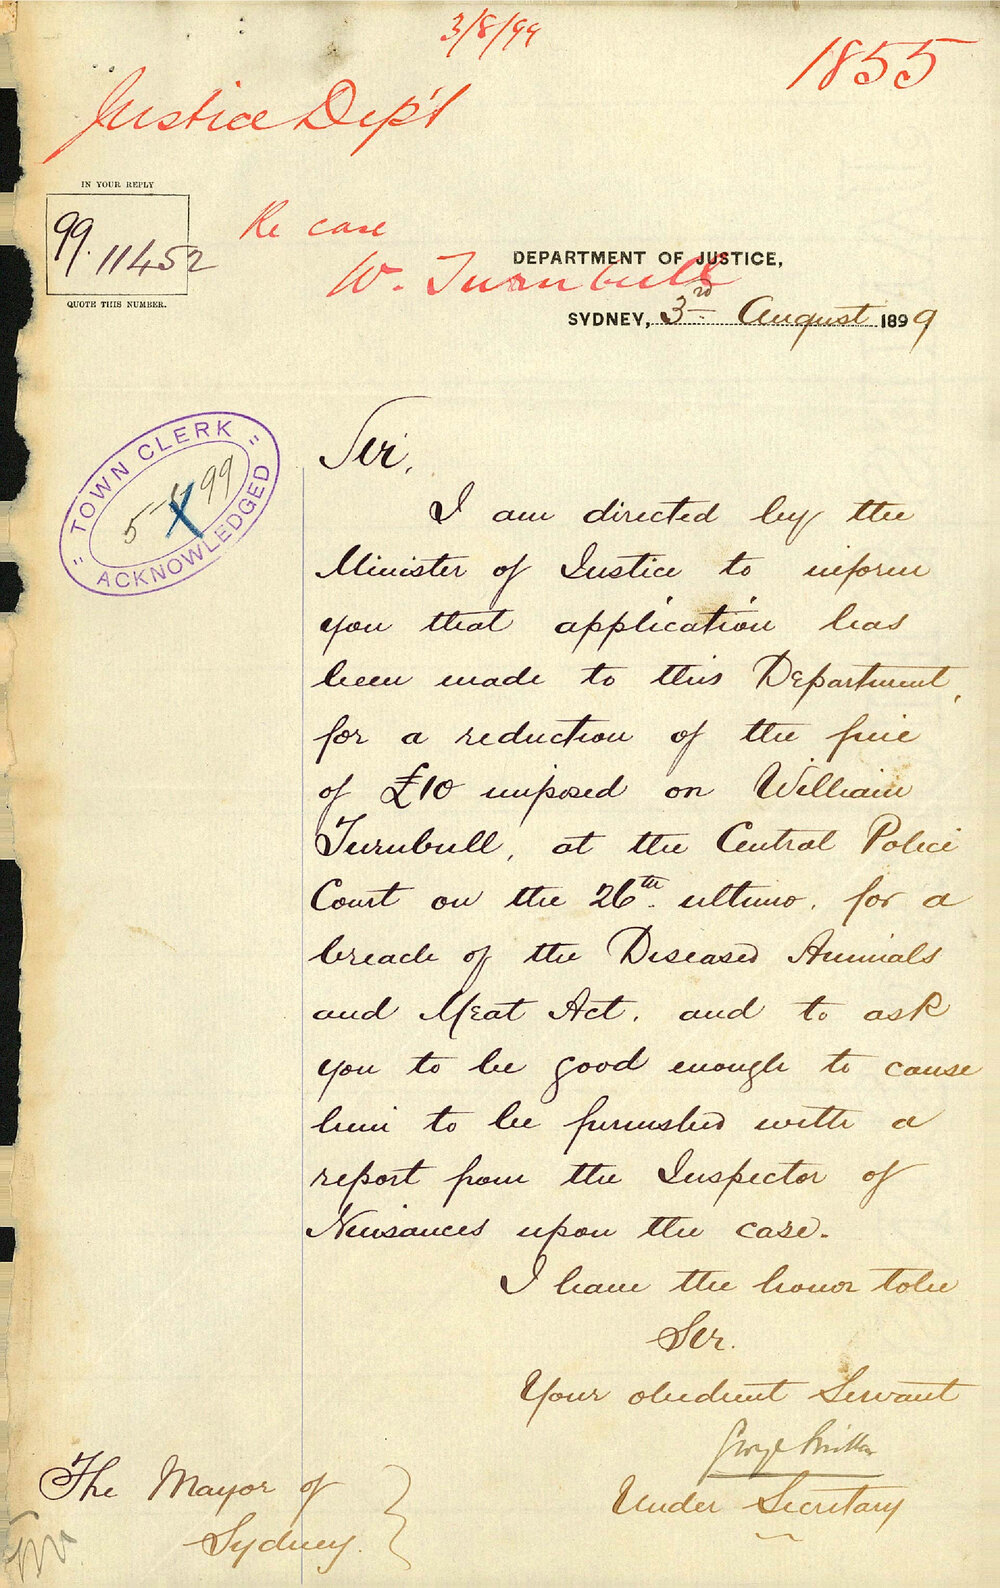 3/8/99
1855
Justice Dep't
IN YOUR REPLY
99.11452
QUOTE THIS NUMBER.
Re case
W. Turnbull
DEPARTMENT OF JUSTICE,
SYDNEY, 3rd August 1899
"TOWN CLERK"
99
ACKNOWLEDGED
Sir,
I am directed by the
Minister of Justice to inform
you that application has
been made to this Department,
for a reduction of the fine
of £10 imposed on William
Turnbull, at the Central Police
Court on the 26th. ultimo, for a
breach of the Diseased Animals
and Meat Act, and to ask
you to be good enough to cause
him to be furnished with a
report from the Inspector of
Nuisances upon the case.
I have the honor to be
Sir.
Your obedient Servant
George Miller
Under Secretary
The Mayor of
Sydney.